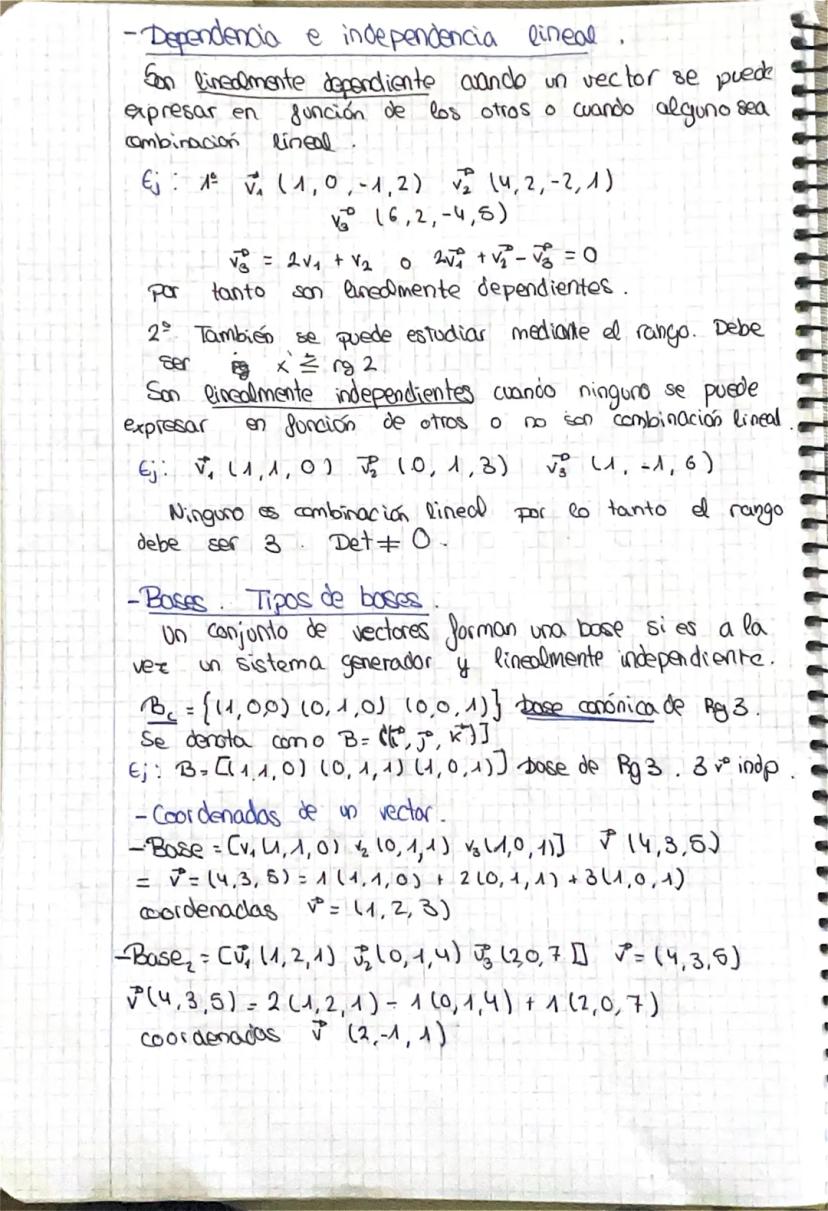 - Dependencia e independencia lineal.
Son linealmente dependiente cuando un vector se puede
expresar en función de los otros o cuando alguno sea
combinación lineal.
Ej: 1º v⃗₁ (1, 0, -1, 2) v⃗₂ (4, 2, -2, 1)
v⃗₃ (6, 2, -4, 5)
v⃗₃ = 2v₁ + v₂ o 2v⃗₁ + v⃗₂ - v⃗₃ = 0
Por tanto son linealmente dependientes.
2º También se puede estudiar mediante el rango. Debe
ser x ≤ rg 2
Son linealmente independientes cuando ninguno se puede
expresar en función de otros o no son combinación lineal.
Ej: v⃗₁ (1, 1, 0) v⃗₂ (0, 1, 3) v⃗₃ (1, -1, 6)
Ninguno es combinación lineal por lo tanto el rango
debe ser 3. Det ≠ 0.
- Bases. Tipos de bases.
Un conjunto de vectores forman una base si es a la
vez un sistema generador y linealmente independiente.
B꜀ = {(1,0,0) (0,1,0) (0,0,1)} base canónica de Rg 3.
Se denota como B = {(i⃗, j⃗, k⃗)}
Ej: B = [(1,1,0) (0,1,1) (1,0,1)] base de Rg 3. 3 v⃗ indp.
- Coordenadas de un vector.
- Base = [v₁(1,1,0) v₂(0,1,1) v₃(1,0,1)] v⃗ (4,3,5)
= v⃗ = (4,3,5) = 1(1,1,0) + 2(0,1,1) + 3(1,0,1)
coordenadas v⃗ = (1,2,3)
- Base₂ = [v⃗₁ (1,2,1) v⃗₂(0,1,4) v⃗₃ (2,0,7)] v⃗ = (4,3,5)
v⃗(4,3,5) = 2(1,2,1) - 1(0,1,4) + 1(2,0,7)
coordenadas v⃗ (2,-1,1)